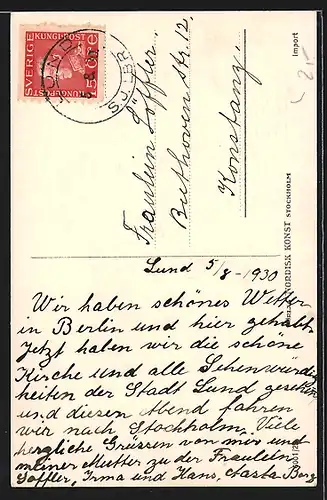 SVERIGE
KUNGUPOST
15 öre
LUND
5.8.30
Fräulein Löffler.
Beethoven Str. 12.
Konstanz.
Import
NORDISK KONST STOCKHOLM
Lund 5/8-1930
Wir haben schönes Wetter
in Berlin und hier gehabt.
Jetzt haben wir die schöne
Kirche und alle Sehenwürdig
heiten der Stadt Lund gesehen
und diesen Abend fahren
wir nach Stockholm. Viele
herzliche Grüssen von mir und
meiner Mutter zu der Fraulein
Löffler, Irma und Hans, Aasta Berg